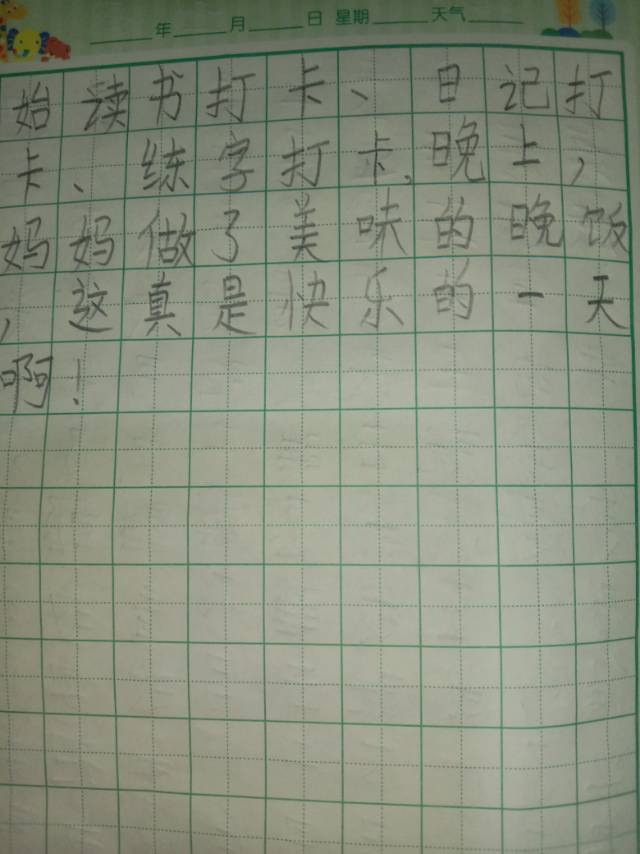 年 月 日 星期 天气
始读书打卡、日记打
卡、练字打卡,晚上,
妈妈做了美味的晚饭
,这真是快乐的一天
啊!